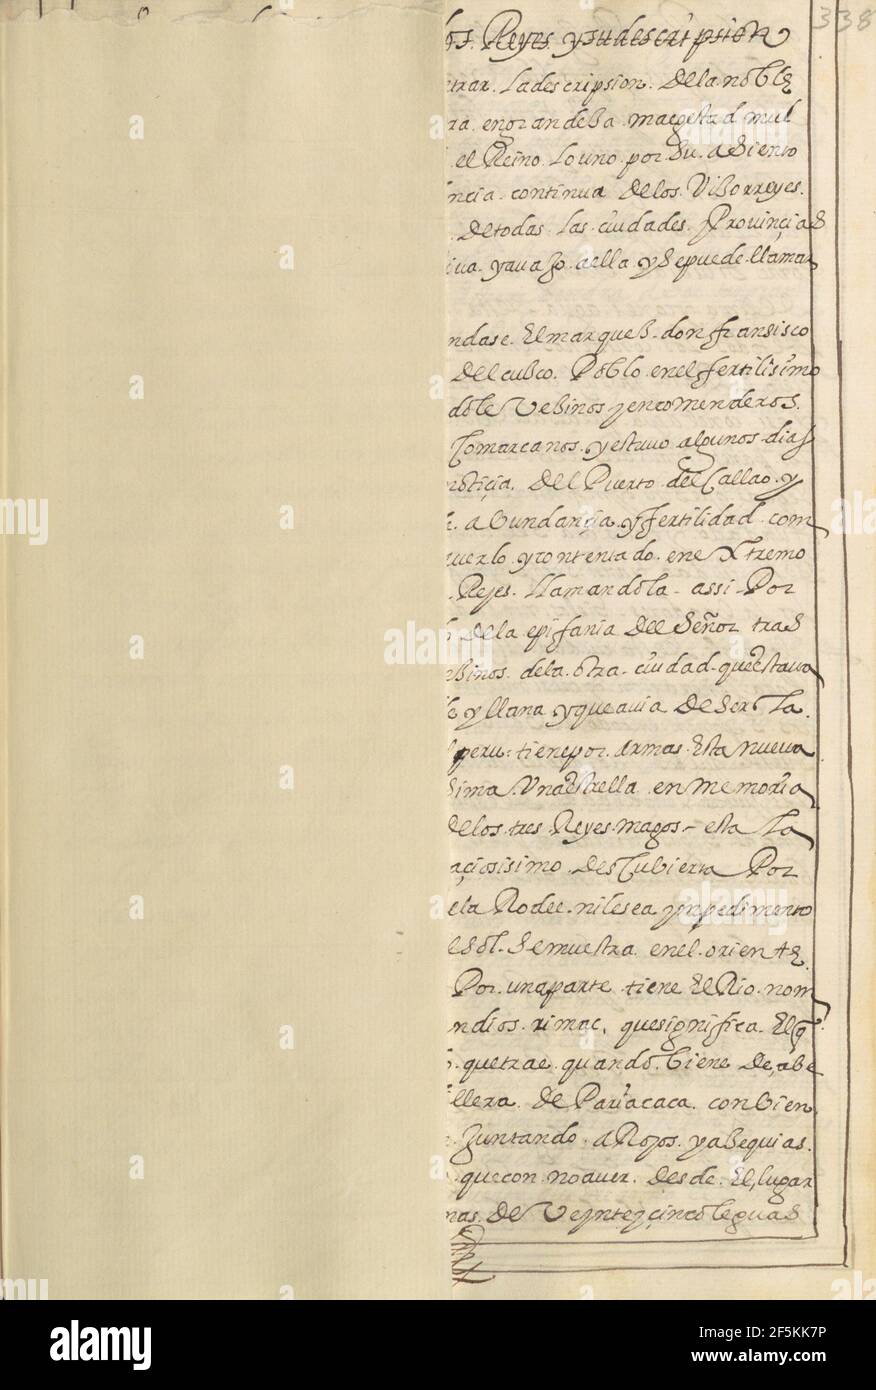 338
los Reyes y su descripsion
trar. La descripsion. De la noble
ra en grandeßa. magestad mul
el Reino. Lo uno por su. asiento
ncia. continua De los. Vißorreyes.
De todas. las. ciudades. Provinçias
iva. y avajo. aella y se puede. llamar
ndase. El marqueß. don fransisco
Del cußco. Poblo. en el fertilisimo
dole Veßinos y encomenderos.
Comarcanos. y estuvo algunos. dias
notiçia. Del Puerto del Callao. y
abundançia. y fertilidad. com
y contentado. en eXtremo
Reyes. llamandola. assi. Por
De la epifania Del Señor tras
eßinos. de la. otra. ciudad. que estava
y llana y que avia De Ser La.
peru: tiene por. armas. Esta nueva
sima. Una estrella. en memoria
de los. tres. Reyes. magos. esta La
açiosisimo. DesCubierta Por
ela Rodee. ni le sea ympedimento
e sol. Se muestra. en el. oriente.
Por. una parte. tiene El Rio. nom
ndios. rimac, que significa. El q̃.
que trae. quando. biene De, abe
illera. De Pariacaca. con bien
Juntando. aRoyos. y aßequias.
que con. no aver. Desde. El, lugar
mas. De Veynte y çinco leguas
alamy
Image ID: 2F5KK7P
www.alamy.com